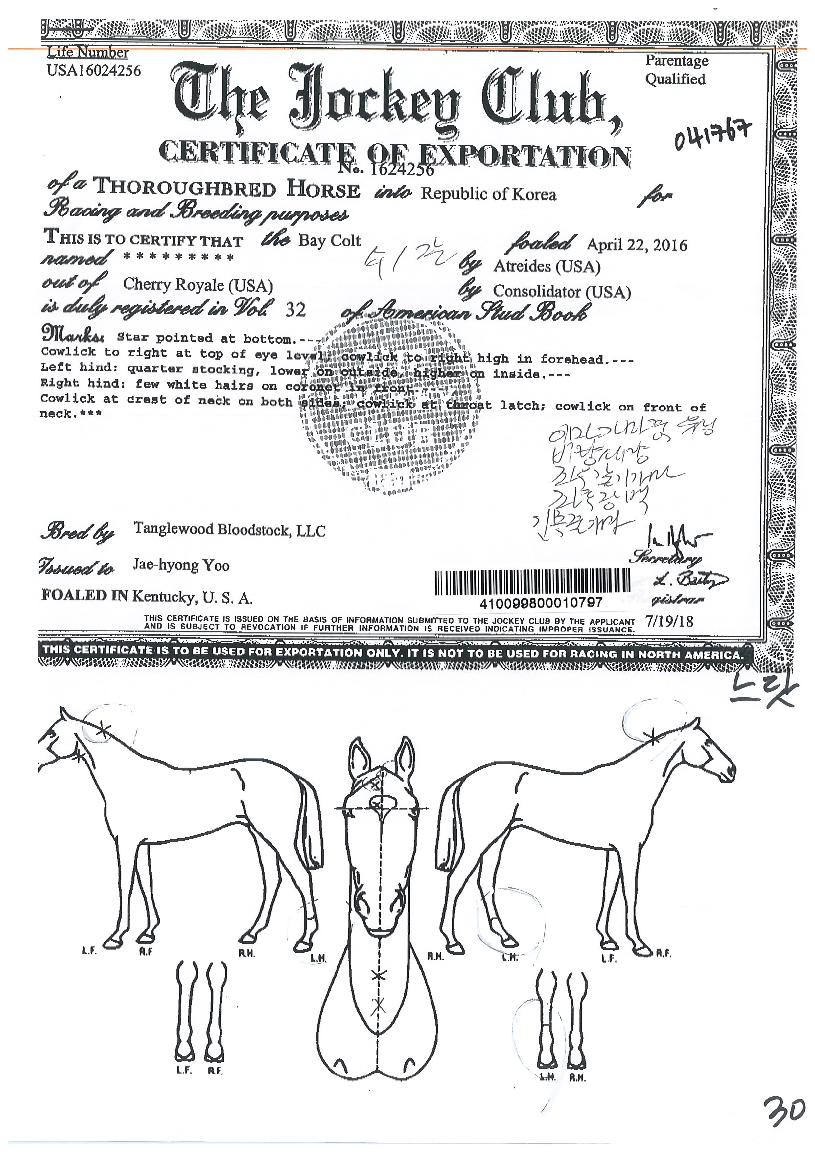 Life Number
USA16024256
Parentage
Qualified
The Jockey Club,
041767
CERTIFICATE OF EXPORTATION
No. 1624256
of a THOROUGHBRED HORSE into Republic of Korea for
Racing and Breeding purposes
THIS IS TO CERTIFY THAT the Bay Colt foaled April 22, 2016
named ********* by Atreides (USA)
out of Cherry Royale (USA) by Consolidator (USA)
is duly registered in Vol. 32 of American Stud Book
Marks: Star pointed at bottom.---
Cowlick to right at top of eye level; cowlick to right high in forehead.---
Left hind: quarter stocking, lower on outside, higher on inside.---
Right hind: few white hairs on coronet in front.
Cowlick at crest of neck on both sides; cowlick at throat latch; cowlick on front of
neck.***
Bred by Tanglewood Bloodstock, LLC
Issued to Jae-hyong Yoo
Secretary
FOALED IN Kentucky, U. S. A.
410099800010797
gistrar
THIS CERTIFICATE IS ISSUED ON THE BASIS OF INFORMATION SUBMITTED TO THE JOCKEY CLUB BY THE APPLICANT
AND IS SUBJECT TO REVOCATION IF FURTHER INFORMATION IS RECEIVED INDICATING IMPROPER ISSUANCE. 7/19/18
THIS CERTIFICATE IS TO BE USED FOR EXPORTATION ONLY. IT IS NOT TO BE USED FOR RACING IN NORTH AMERICA.
L.F. R.F. R.H. L.H. R.H. L.H. L.F. R.F.
L.F. R.F. L.H. R.H.
30